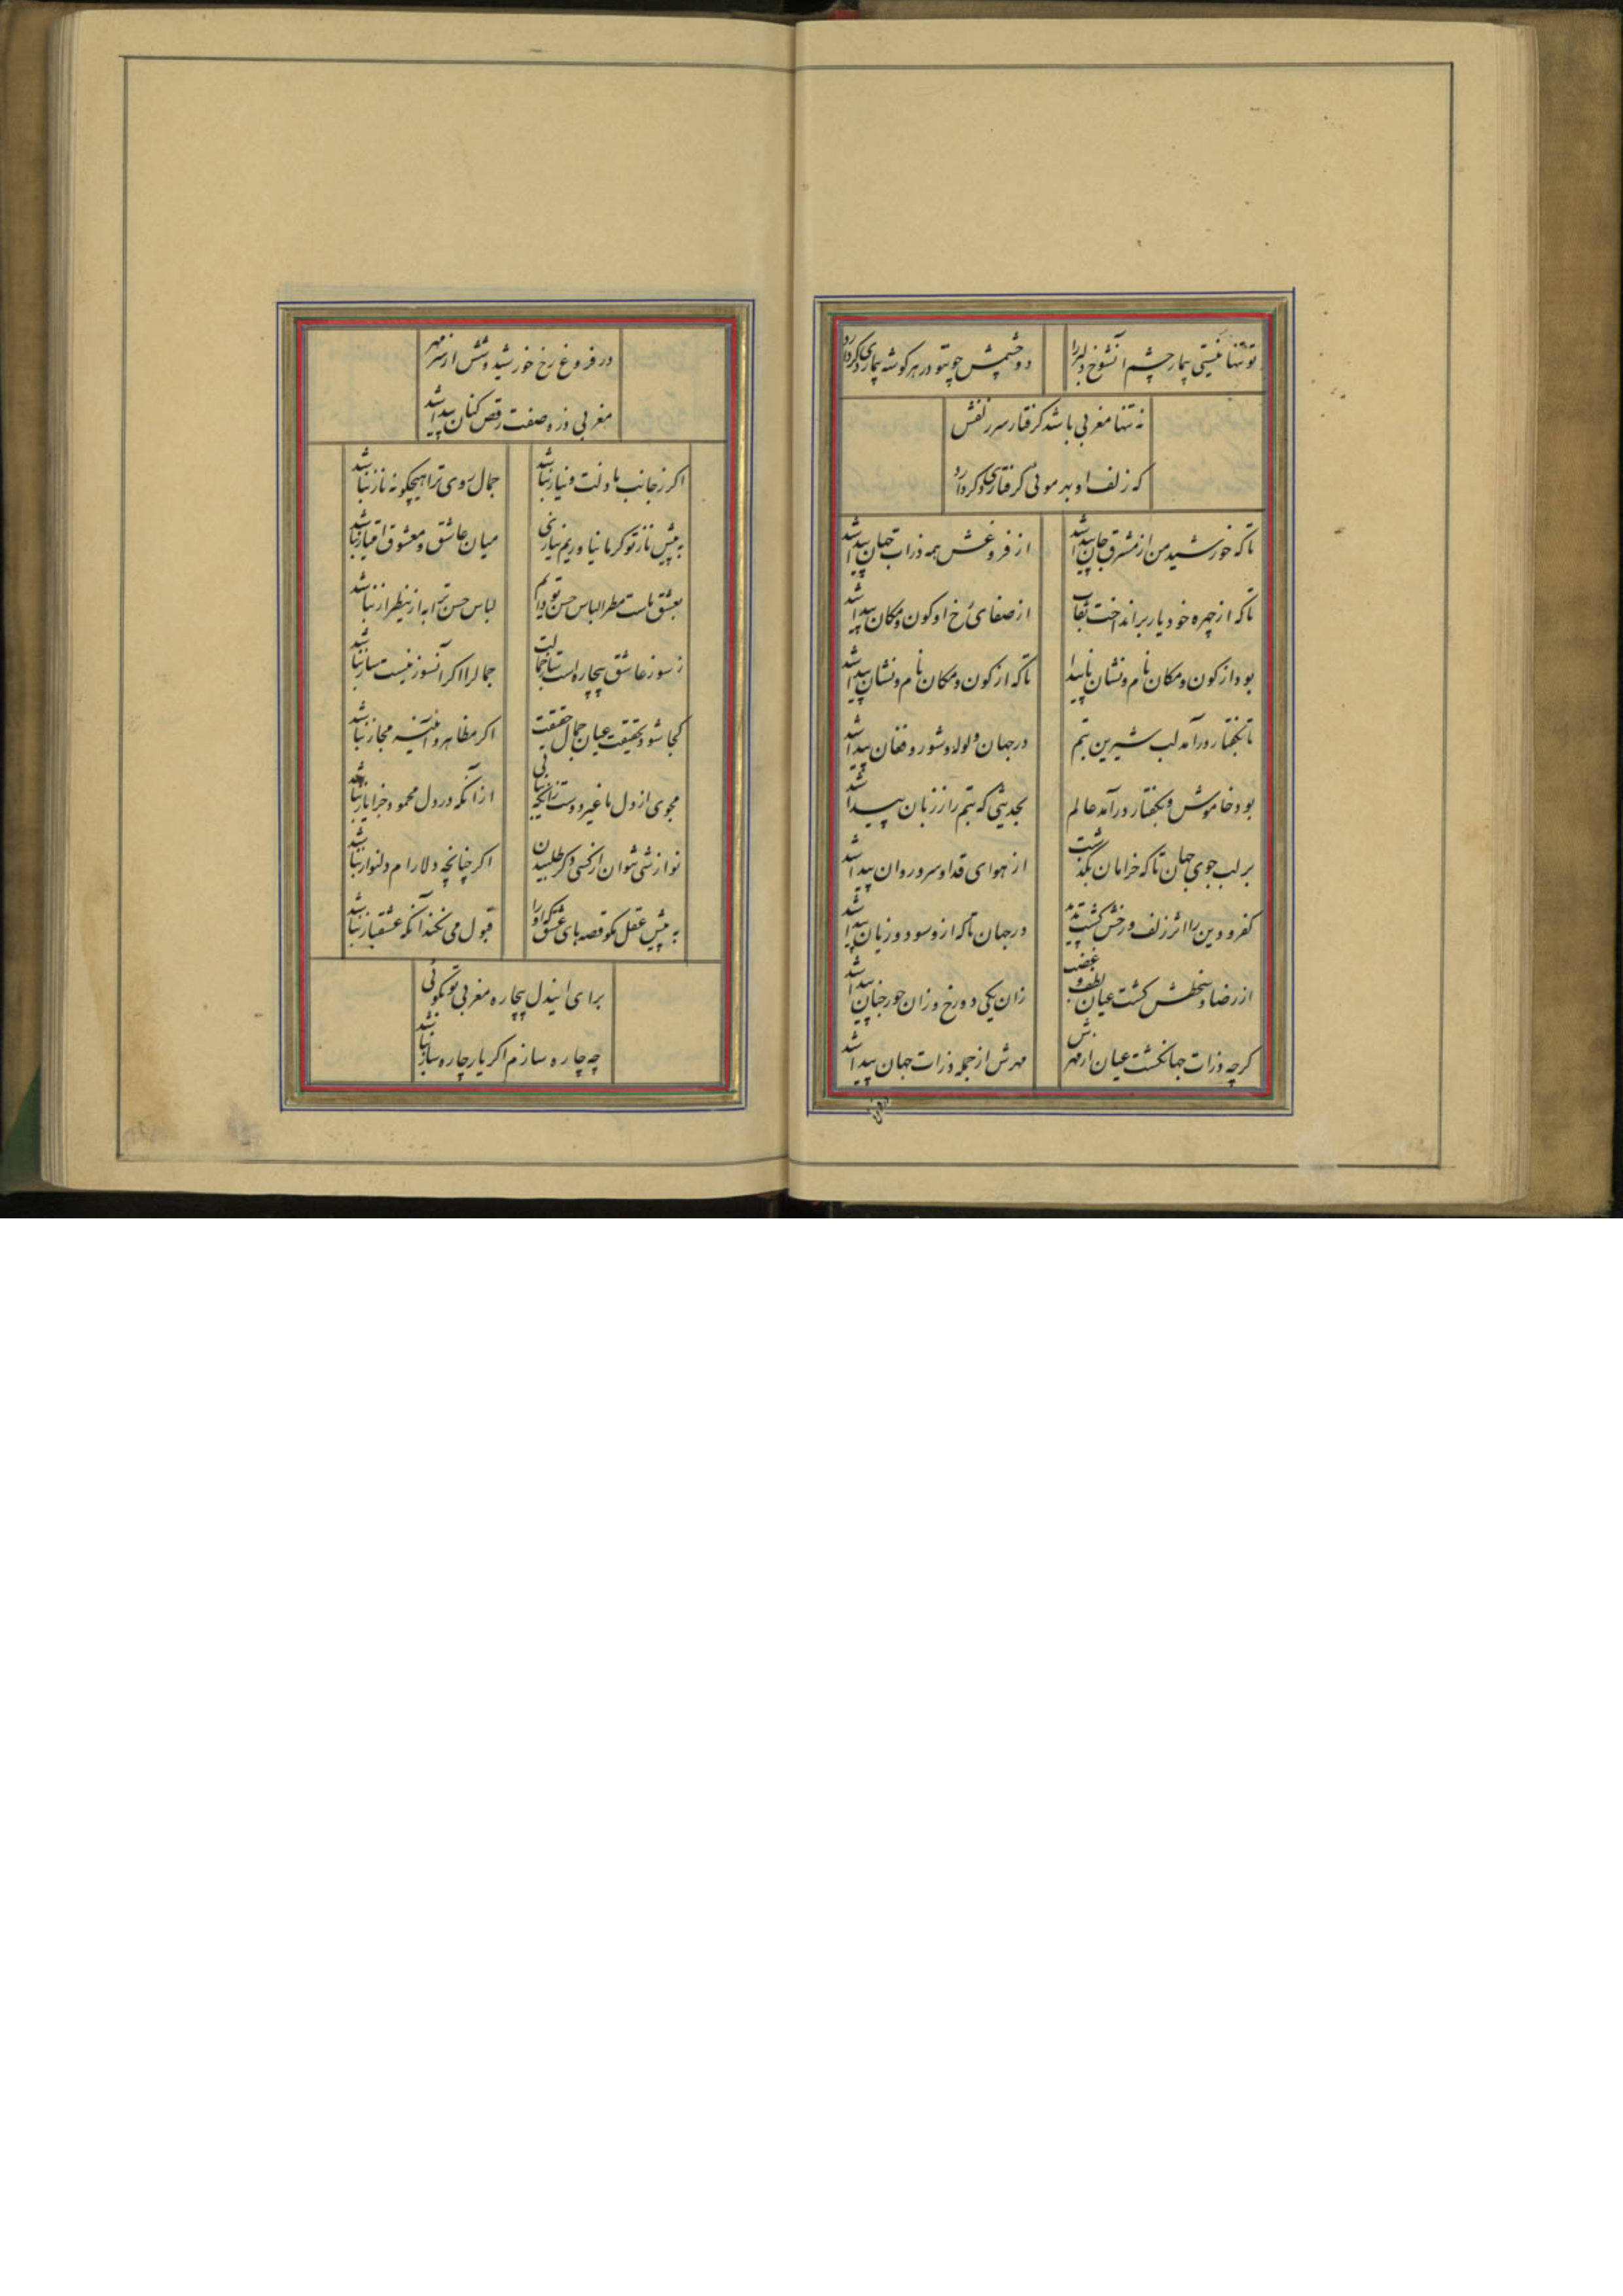 تو تنها نیستی بیمار چشم آنشوخ دلبر را
دو چشمش چو تو در هر گوشه بیماری دگر دارد
نه تنها مغربی باشد گرفتار سر زلفش
که زلف او بهر موئی گرفتاری دگر دارد
تا که خورشید من از مشرق جان پیدا شد
از فروغش همه ذرات جهان پیدا شد
تا که از چهره خود یار برانداخت نقاب
از صفای رخ او کون و مکان پیدا شد
بود از کون و مکان نام و نشان ناپیدا
تا که از کون و مکان نام و نشان پیدا شد
تا بگفتار درآمد لب شیرین بتم
در جهان ولوله و شور و فغان پیدا شد
بود خاموش و بگفتار درآمد عالم
بحدیثی که بتم را ز زبان پیدا شد
بر لب جوی جهان تا که خرامان بگذشت
از هوای قد او سرو روان پیدا شد
کفر و دین را اثر زلف و رخش گشت پدید
در جهان تا که ازو سود و زیان پیدا شد
از رضا و سخطش گشت عیان لطف و غضب
زان یکی دوزخ و زان حور جنان پیدا شد
گرچه ذرات جهان گشت عیان از مهرش
مهرش از جمله ذرات جهان پیدا شد
در فروغ رخ خورشید وشش از سر مهر
مغربی ذره صفت رقص کنان پیدا شد
اگر ز جانب ما ذلت و نیاز نباشد
جمال روی ترا هیچگونه ناز نباشد
به پیش ناز تو گر ما نیاوریم نیازی
میان عاشق و معشوق امتیاز نباشد
بعشق ماست مطرا لباس حسن تو دایم
لباس حسن ترا به ازین طراز نباشد
ز سوز عاشق بیچاره است ساز جمالت
جمال را اگر آنسوز نیست ساز نباشد
کجا شود بحقیقت عیان جمال حقیقت
اگر مظاهر و آئینه مجاز نباشد
مجوی از دل ما غیر دوست زانکه نیابی
از آنکه در دل محمود جز ایاز نباشد
نوازشی نتوان از کسی دگر طلبیدن
اگر چنانچه دلارام دلنواز نباشد
به پیش عقل مگو قصه های عشق که او را
قبول می نکند آنکه عشقباز نباشد
برای ایندل بیچاره مغربی تو نگوئی
چه چاره سازم اگر یار چاره ساز نباشد